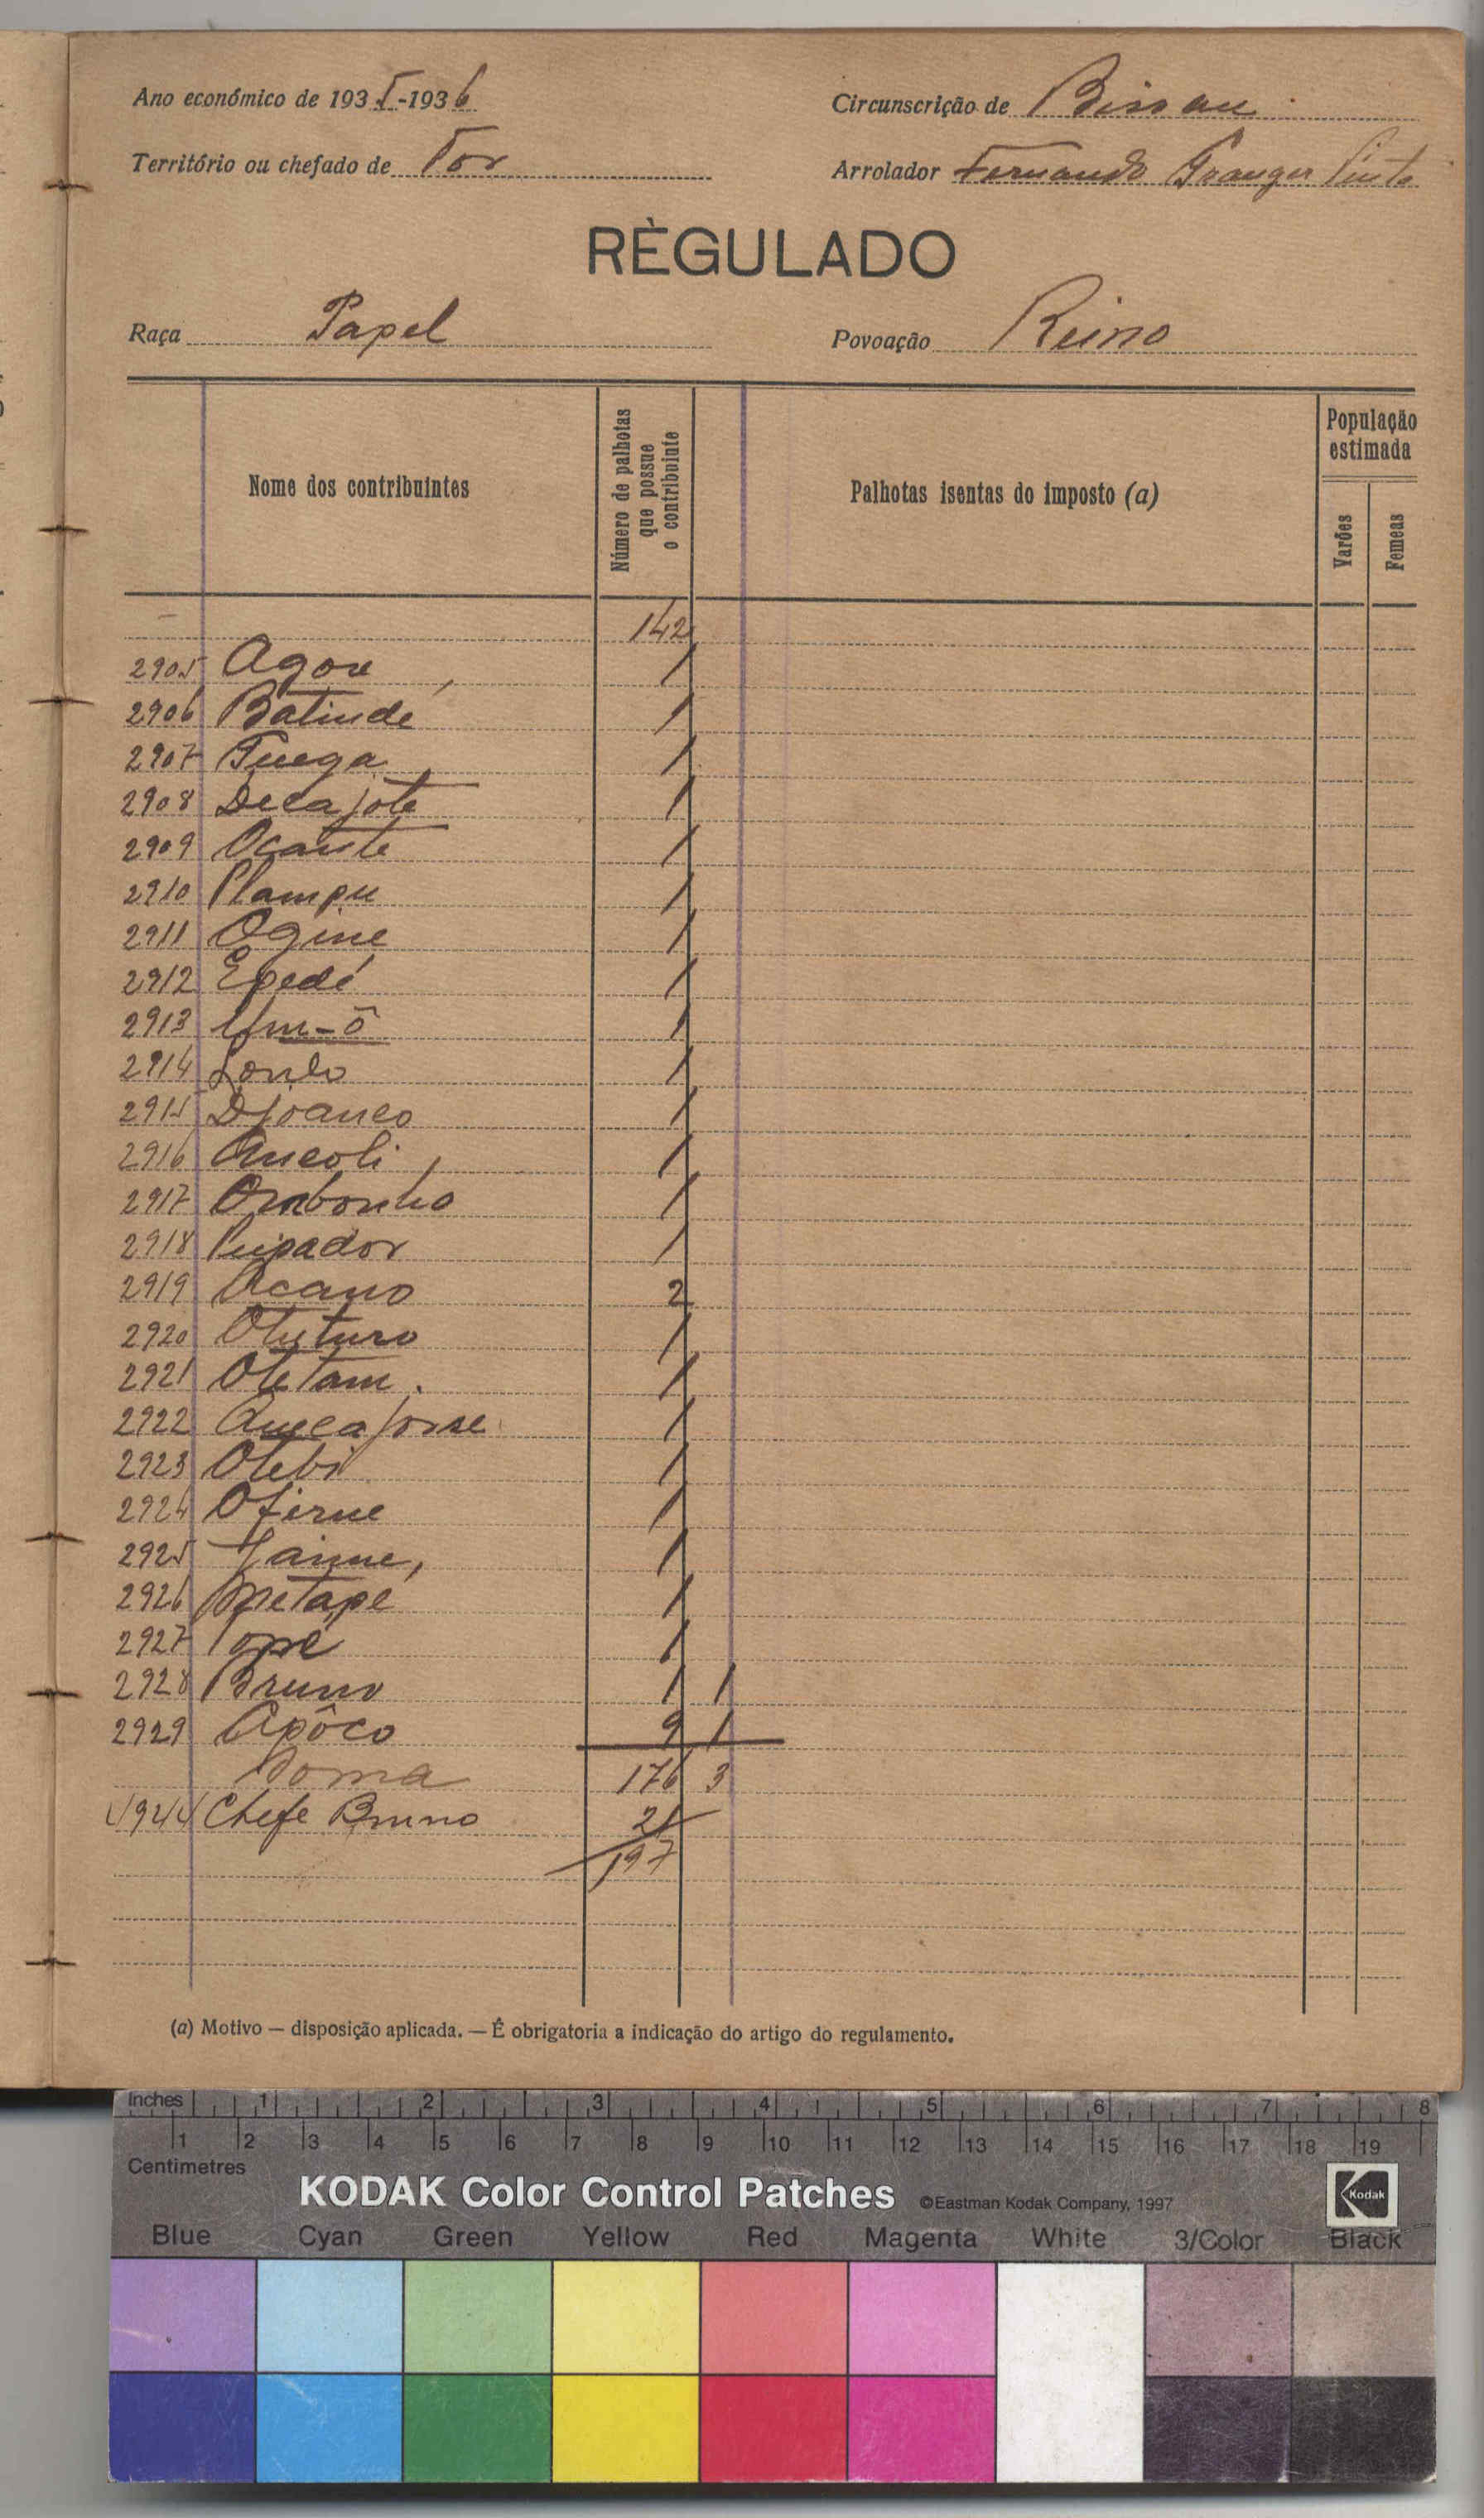 Ano económico de 1935-1936
Circunscrição de Bissau
Território ou chefado de Tor
Arrolador Fernando Granger Pinto
RÈGULADO
Raça Papel
Povoação Reino
Nome dos contribuintes
Número de palhotas que possue o contribuinte
Palhotas isentas do imposto (a)
População estimada
Varões
Femeas
142
2905 Agou 1
2906 Batinde 1
2907 Tuega 1
2908 Decajote 1
2909 Ocante 1
2910 Plampu 1
2911 Ogine 1
2912 Epedé 1
2913 Um-ô 1
2914 1
2915 Djoanco 1
2916 Ancoli 1
2917 Ombonho 1
2918 Pupador 1
2919 Acano 2
2920 Otuturo 1
2921 Otetam 1
2922 1
2923 Otebi 1
2924 Ofirne 1
2925 Jaime, 1
2926 Metape 1
2927 Topé 1
2928 Bruno 1 1
2929 Apôco 9 1
Soma 176 3
Chefe Bruno 21
197
(a) Motivo — disposição aplicada. — É obrigatoria a indicação do artigo do regulamento.
Inches 1 2 3 4 5 6 7 8
1 2 3 4 5 6 7 8 9 10 11 12 13 14 15 16 17 18 19
Centimetres
KODAK Color Control Patches ©Eastman Kodak Company, 1997 Kodak
Blue Cyan Green Yellow Red Magenta White 3/Color Black